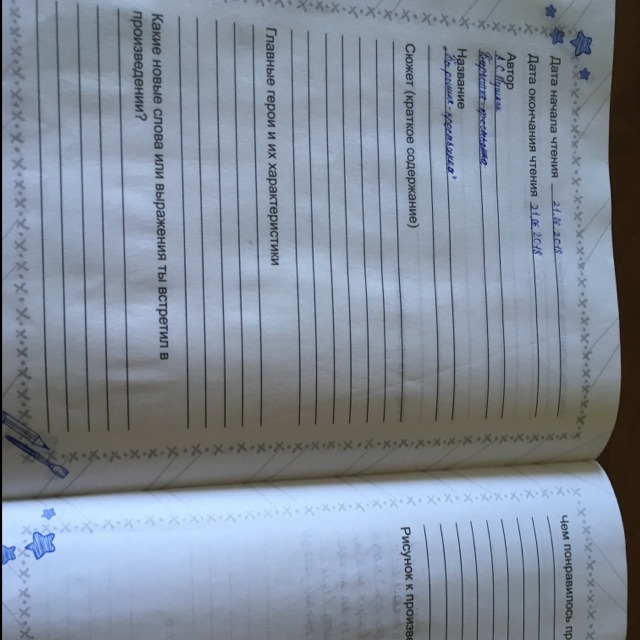 Дата начала чтения 21.06.2018
Дата окончания чтения 21.06.2018
Автор
А. С. Пушкин
Название
"Барышня-крестьянка"
Сюжет (краткое содержание)
Главные герои и их характеристики
Какие новые слова или выражения ты встретил в
произведении?
Чем понравилось пр
Рисунок к произве